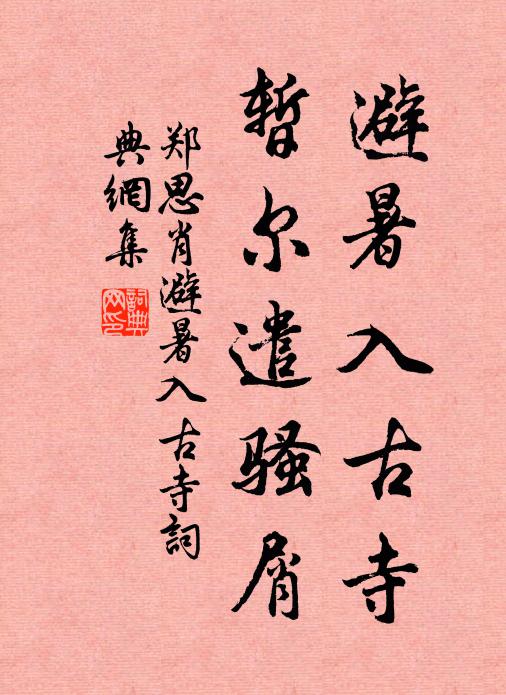 避暑入古寺
暂尔遣骚屑
郑思肖避暑入古寺詞
典網集
詞典網印